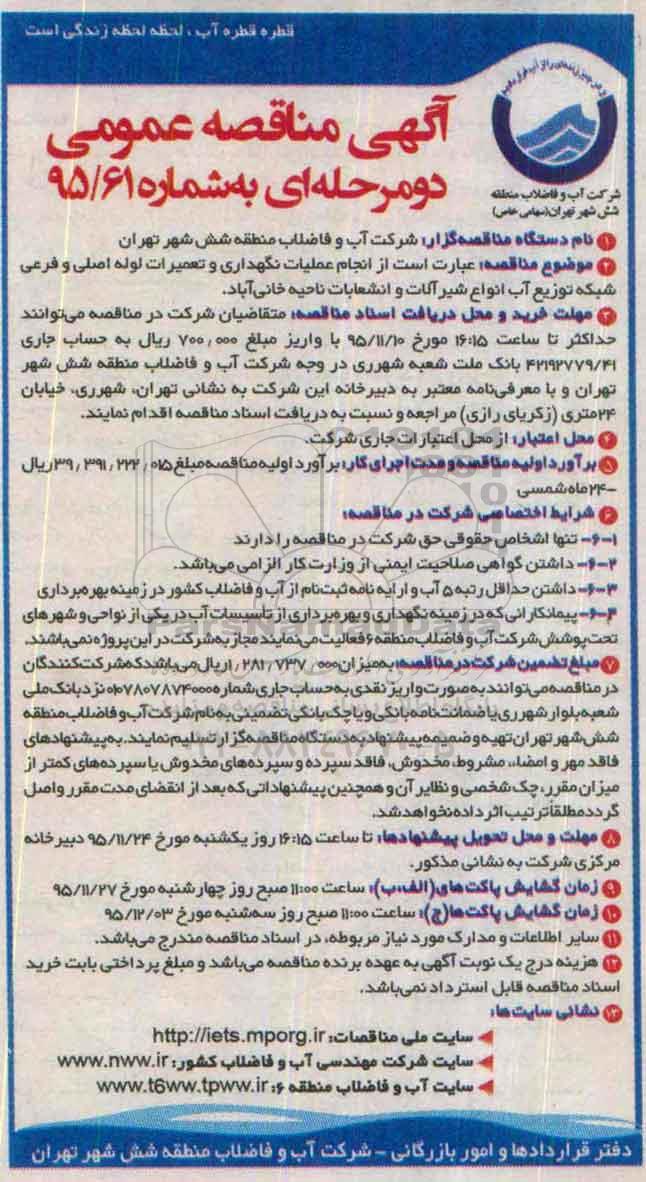 قطره قطره آب ، لحظه لحظه زندگی است
شرکت آب و فاضلاب منطقه
شش شهر تهران (سهامی خاص)
آگهی مناقصه عمومی
دومرحله‌ای به‌شماره ۹۵/۶۱
۱ نام دستگاه مناقصه‌گزار: شرکت آب و فاضلاب منطقه شش شهر تهران
۲ موضوع مناقصه: عبارت است از انجام عملیات نگهداری و تعمیرات لوله اصلی و فرعی
شبکه توزیع آب انواع شیرآلات و انشعابات ناحیه خانی‌آباد.
۳ مهلت خرید و محل دریافت اسناد مناقصه: متقاضیان شرکت در مناقصه می‌توانند
حداکثر تا ساعت ۱۶:۱۵ مورخ ۹۵/۱۱/۱۰ با واریز مبلغ ۷۰۰,۰۰۰ ریال به حساب جاری
۴۲۱۹۲۷۷۹/۴۱ بانک ملت شعبه شهرری در وجه شرکت آب و فاضلاب منطقه شش شهر
تهران و با معرفی‌نامه معتبر به دبیرخانه این شرکت به نشانی تهران، شهرری، خیابان
۲۴متری (زکریای رازی) مراجعه و نسبت به دریافت اسناد مناقصه اقدام نمایند.
۴ محل اعتبار: از محل اعتبارات جاری شرکت.
۵ برآورد اولیه مناقصه و مدت اجرای کار: برآورد اولیه مناقصه مبلغ ۳۹,۳۹۱,۲۲۲,۰۱۵ ریال
-۲۴ ماه شمسی
۶ شرایط اختصاصی شرکت در مناقصه:
۶-۱- تنها اشخاص حقوقی حق شرکت در مناقصه را دارند
۶-۲- داشتن گواهی صلاحیت ایمنی از وزارت کار الزامی می‌باشد.
۶-۳- داشتن حداقل رتبه ۵ آب و ارایه نامه ثبت‌نام از آب و فاضلاب کشور در زمینه بهره‌برداری
۶-۴- پیمانکارانی که در زمینه نگهداری و بهره‌برداری از تأسیسات آب در یکی از نواحی و شهرهای
تحت‌پوشش شرکت آب و فاضلاب منطقه ۶ فعالیت می‌نمایند مجاز به شرکت در این پروژه نمی‌باشند.
۷ مبلغ تضمین شرکت در مناقصه: به‌میزان ۱,۲۸۱,۷۳۷,۰۰۰ ریال می‌باشد که شرکت‌کنندگان
در مناقصه می‌توانند به صورت واریز نقدی به حساب جاری شماره ۰۱۰۷۸۰۷۸۷۴۰۰۰ نزد بانک ملی
شعبه بلوار شهرری یا ضمانت‌نامه بانکی و یا چک بانکی تضمینی به نام شرکت آب و فاضلاب منطقه
شش شهر تهران تهیه و ضمیمه پیشنهاد به دستگاه مناقصه‌گزار تسلیم نمایند. به پیشنهادهای
فاقد مهر و امضاء، مشروط، مخدوش، فاقد سپرده و سپرده‌های مخدوش یا سپرده‌های کمتر از
میزان مقرر، چک شخصی و نظایر آن و همچنین پیشنهاداتی که بعد از انقضای مدت مقرر واصل
گردد مطلقاً ترتیب اثر داده نخواهد شد.
۸ مهلت و محل تحویل پیشنهادها: تا ساعت ۱۶:۱۵ روز یکشنبه مورخ ۹۵/۱۱/۲۴ دبیرخانه
مرکزی شرکت به نشانی مذکور.
۹ زمان گشایش پاکت‌های (الف،ب): ساعت ۱۱:۰۰ صبح روز چهارشنبه مورخ ۹۵/۱۱/۲۷
۱۰ زمان گشایش پاکت‌ها(ج): ساعت ۱۱:۰۰ صبح روز سه‌شنبه مورخ ۹۵/۱۲/۰۳
۱۱ سایر اطلاعات و مدارک مورد نیاز مربوطه، در اسناد مناقصه مندرج می‌باشد.
۱۲ هزینه درج یک نوبت آگهی به عهده برنده مناقصه می‌باشد و مبلغ پرداختی بابت خرید
اسناد مناقصه قابل استرداد نمی‌باشد.
۱۳ نشانی سایت‌ها:
سایت ملی مناقصات: http://iets.mporg.ir
سایت شرکت مهندسی آب و فاضلاب کشور: www.nww.ir
سایت آب و فاضلاب منطقه ۶: www.t6ww.tpww.ir
دفتر قراردادها و امور بازرگانی - شرکت آب و فاضلاب منطقه شش شهر تهران